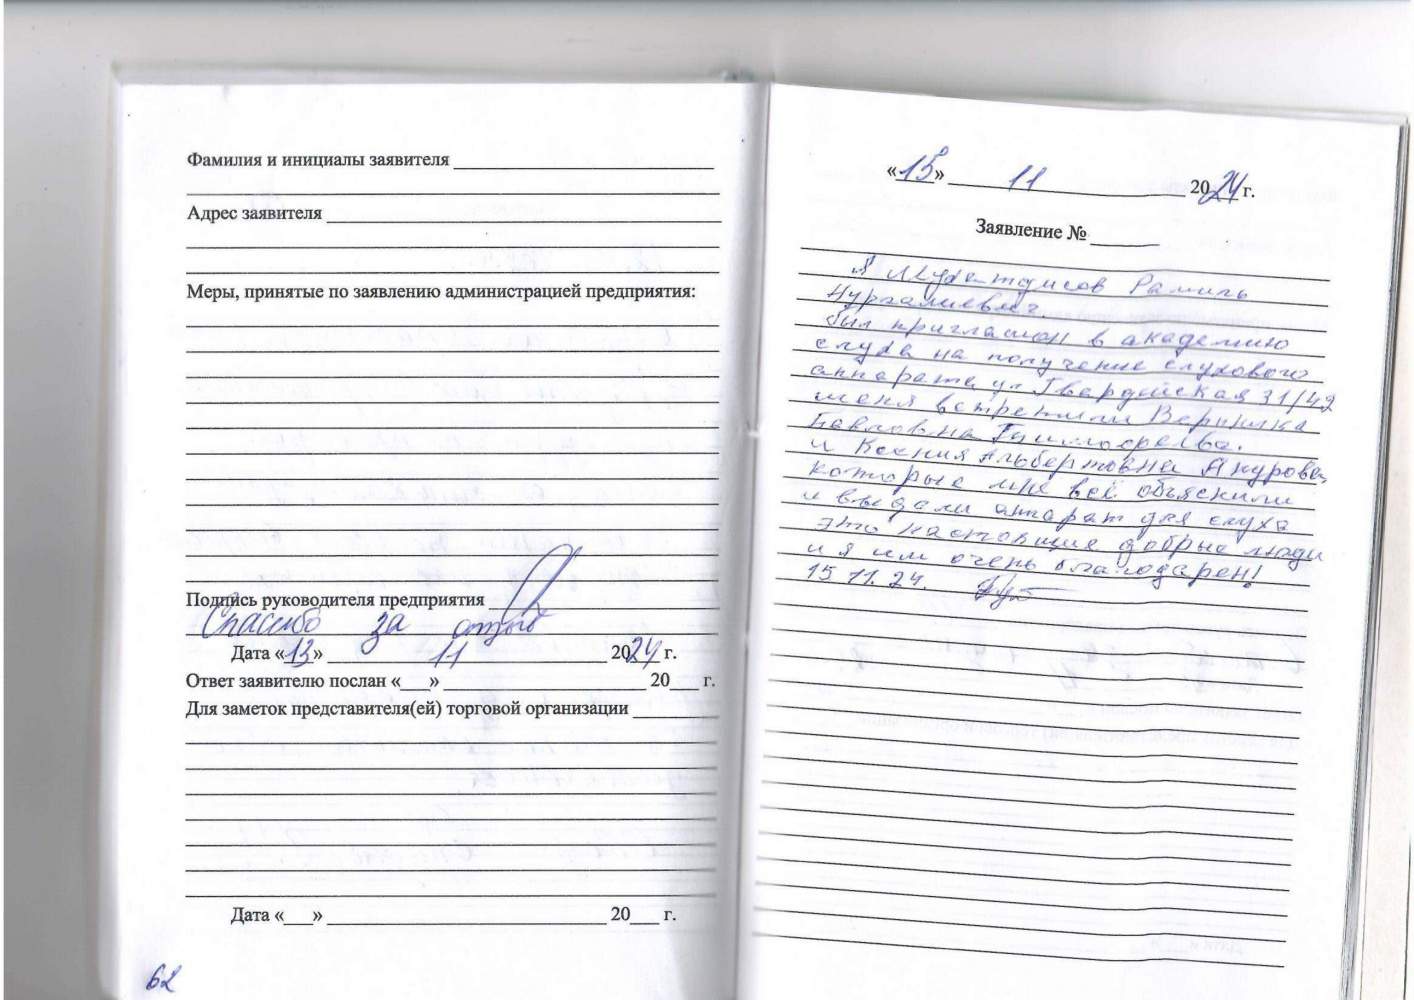 Фамилия и инициалы заявителя
Адрес заявителя
Меры, принятые по заявлению администрацией предприятия:
Подпись руководителя предприятия
Спасибо за отзыв
Дата «13» 11 2024 г.
Ответ заявителю послан «___» 20___ г.
Для заметок представителя(ей) торговой организации
Дата «___» 20___ г.
62
«15» 11 2024 г.
Заявление №
Я Рамиль
Нургалиевич.
был приглашон в академию
слуха на получение слухового
аппарата, ул Гвардейская 31/42
меня встретили
Павловна
и Ксения Альбертовна
которые мне всё объяснили
и выдали аппарат для слуха
это настоящие добрые люди
и я им очень благодарен!
15 11. 24.